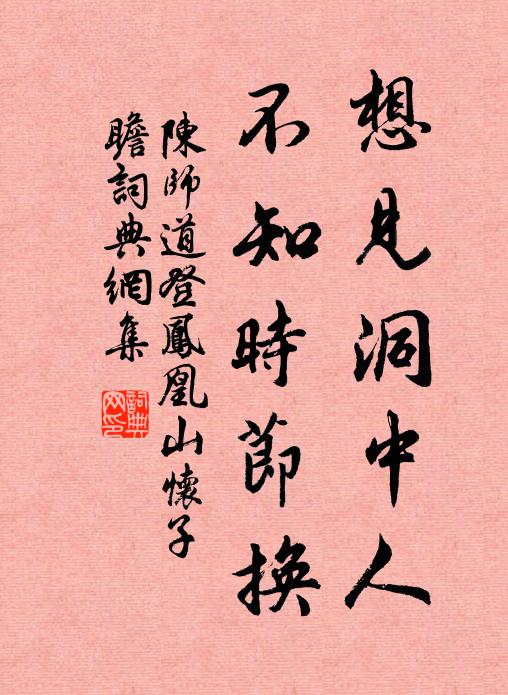 想見洞中人
不知時節換
陳師道登鳳凰山懷子
瞻詞典網集
詞典
网印